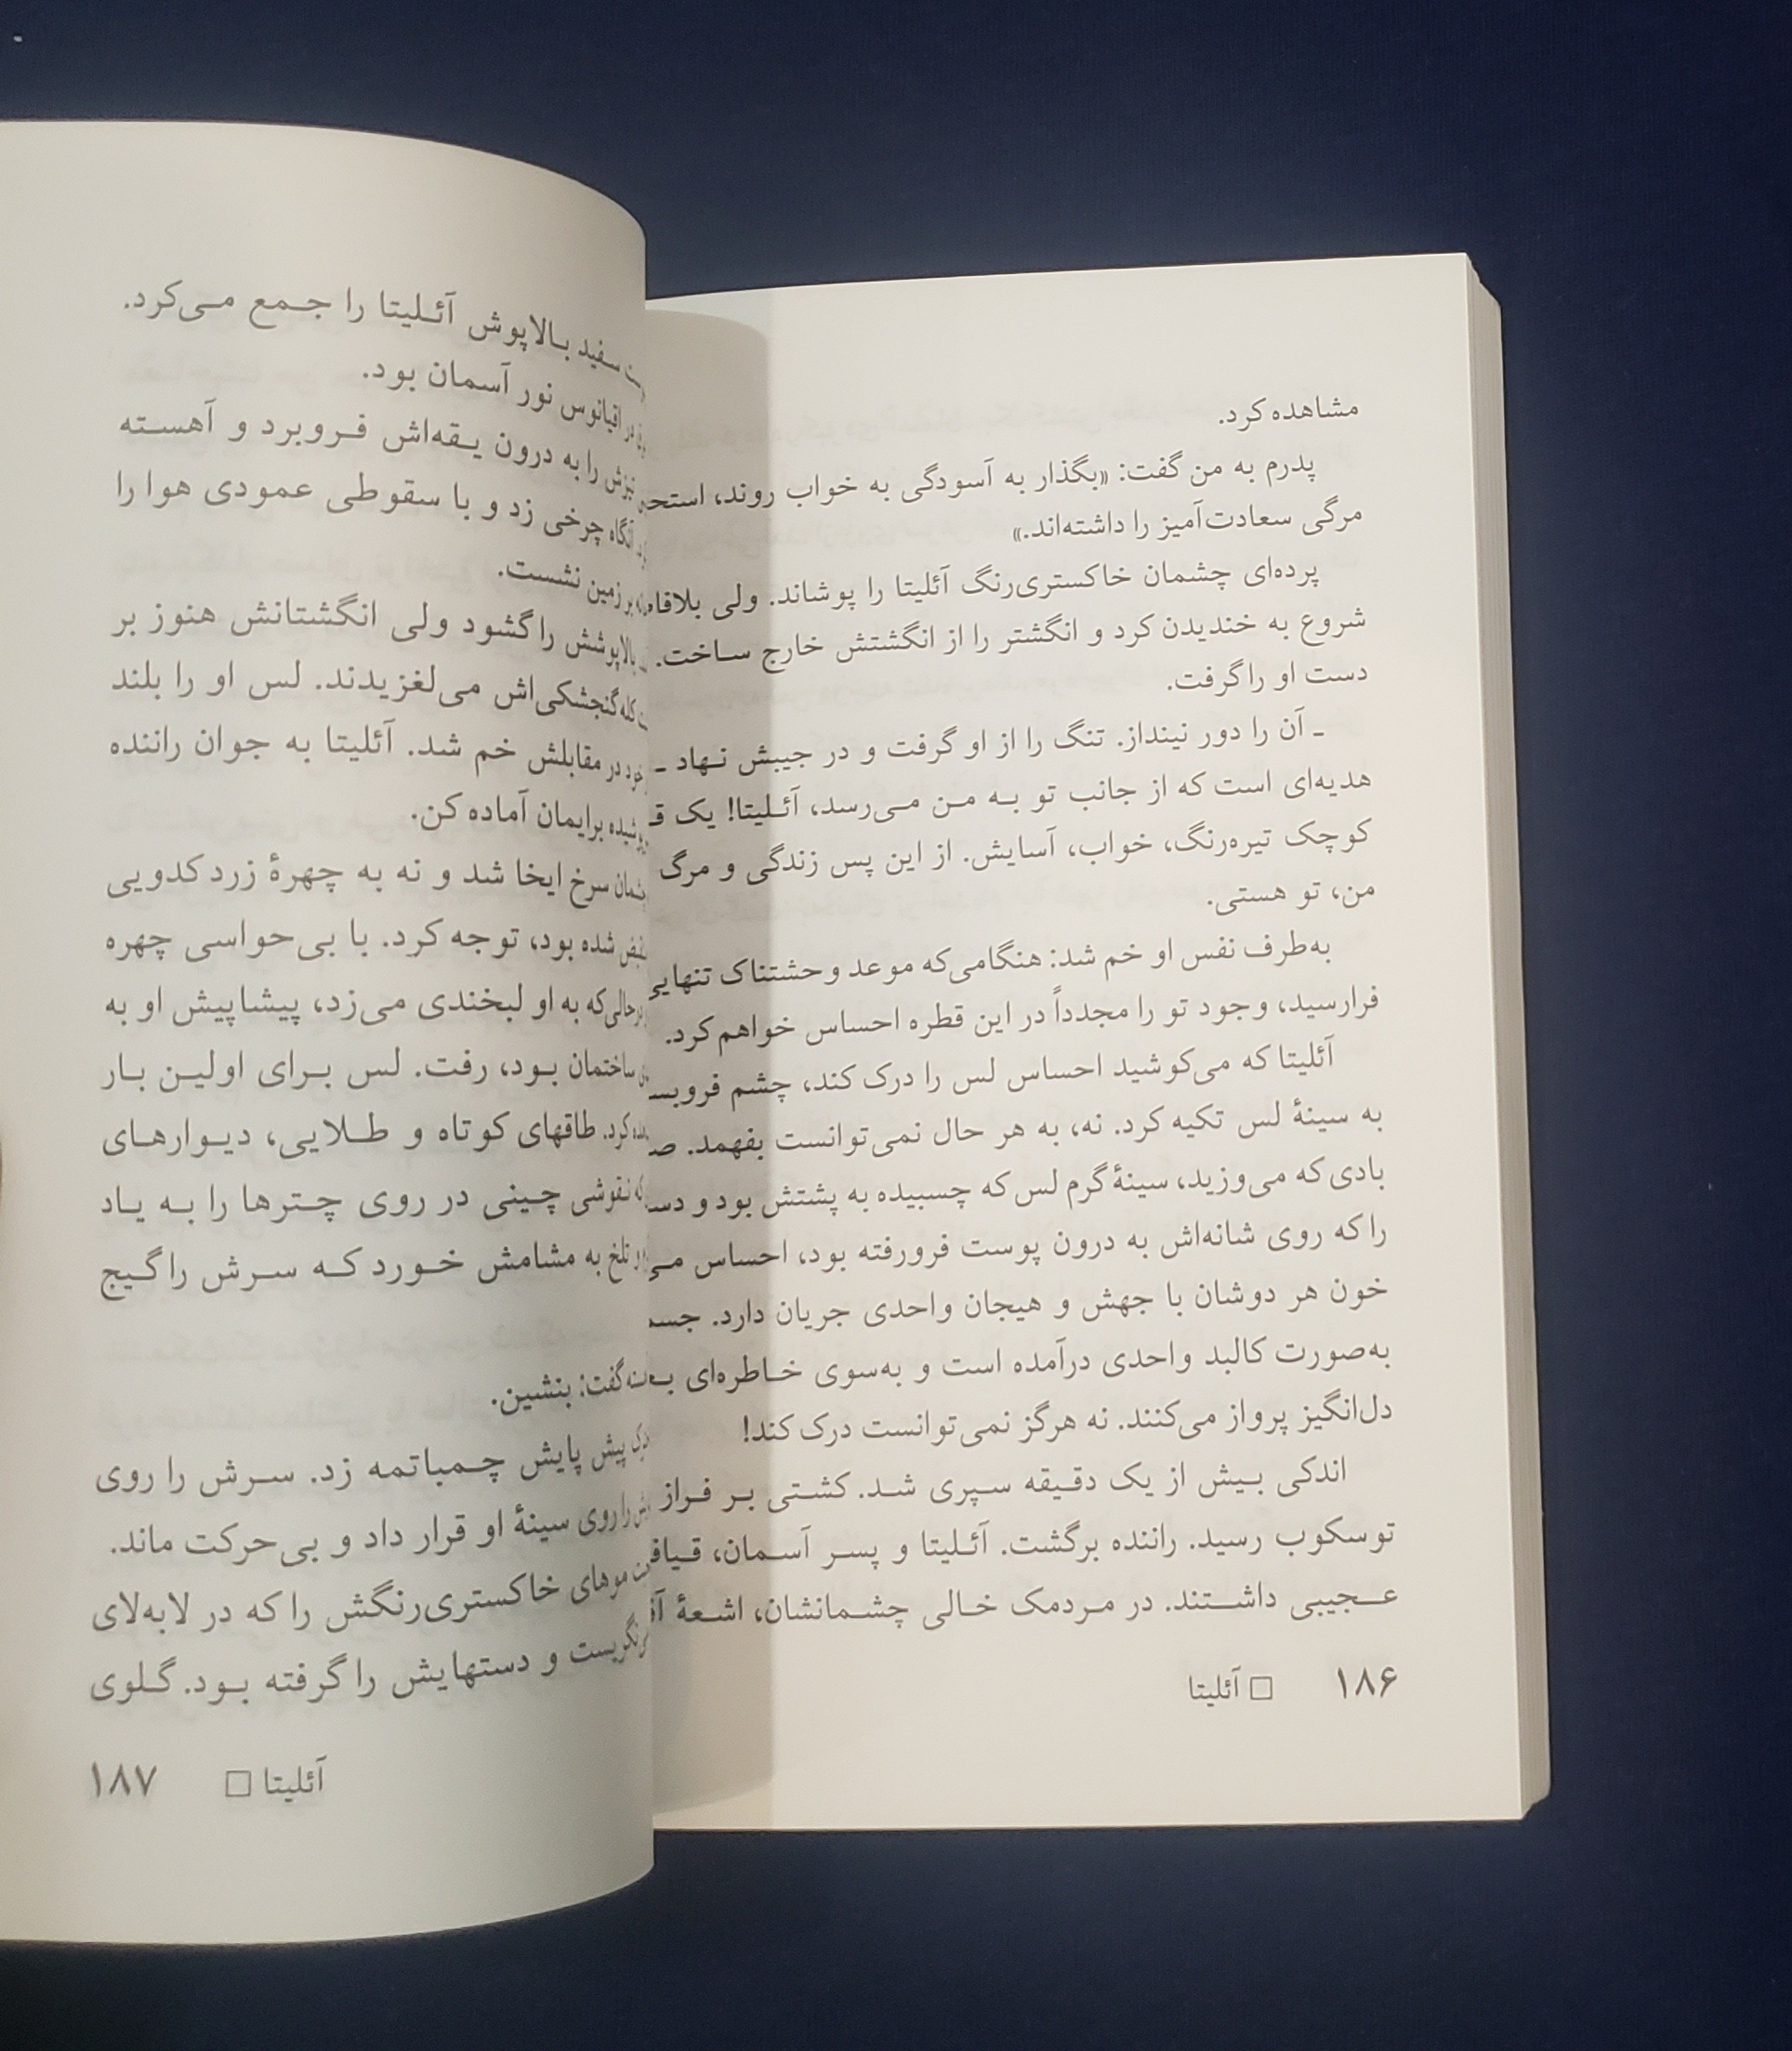 مشاهده کرد.
پدرم به من گفت: «بگذار به آسودگی به خواب روند،
مرگی سعادت‌آمیز را داشته‌اند.»
پرده‌ای چشمان خاکستری‌رنگ آئلیتا را پوشاند. ولی
شروع به خندیدن کرد و انگشتر را از انگشتش خارج ساخت.
دست او را گرفت.
ـ آن را دور نینداز. تنگ را از او گرفت و در جیبش نهاد ـ
هدیه‌ای است که از جانب تو به من می‌رسد، آئلیتا! یک
کوچک تیره‌رنگ، خواب، آسایش. از این پس زندگی و مرگ
من، تو هستی.
به‌طرف نفس او خم شد: هنگامی‌که موعد وحشتناک
فرارسید، وجود تو را مجدداً در این قطره احساس خواهم‌کرد.
آئلیتا که می‌کوشید احساس لس را درک کند، چشم
به سینهٔ لس تکیه کرد. نه، به هر حال نمی‌توانست بفهمد.
بادی که می‌وزید، سینهٔ گرم لس که چسبیده به پشتش بود و
را که روی شانه‌اش به درون پوست فرورفته بود، احساس
خون هر دوشان با جهش و هیجان واحدی جریان دارد.
به‌صورت کالبد واحدی درآمده است و به‌سوی خاطره‌ای
دل‌انگیز پرواز می‌کنند. نه هرگز نمی‌توانست درک کند!
اندکی بیش از یک دقیقه سپری شد. کشتی بر فراز
توسکوب رسید. راننده برگشت. آئلیتا و پسر آسمان،
عجیبی داشتند. در مردمک خالی چشمانشان، اشعهٔ
۱۸۶ □ آئلیتا
سفید بالاپوش آئلیتا را جمع می‌کرد.
در اقیانوس نور آسمان بود.
را به درون یقه‌اش فروبرد و آهسته
آنگاه چرخی زد و با سقوطی عمودی هوا را
بر زمین نشست.
بالاپوشش را گشود ولی انگشتانش هنوز بر
کله گنجشکی‌اش می‌لغزیدند. لس او را بلند
در مقابلش خم شد. آئلیتا به جوان راننده
برایمان آماده کن.
سرخ ایخا شد و نه به چهرهٔ زرد کدویی
شده بود، توجه کرد. با بی‌حواسی چهره
به او لبخندی می‌زد، پیشاپیش او به
ساختمان بود، رفت. لس برای اولین بار
کرد. طاقهای کوتاه و طلایی، دیوارهای
نقوشی چینی در روی چترها را به یاد
و تلخ به مشامش خورد که سرش را گیج
گفت: بنشین.
پیش پایش چمباتمه زد. سرش را روی
را روی سینهٔ او قرار داد و بی‌حرکت ماند.
موهای خاکستری‌رنگش را که در لابه‌لای
و دستهایش را گرفته بود. گلوی
آئلیتا □ ۱۸۷